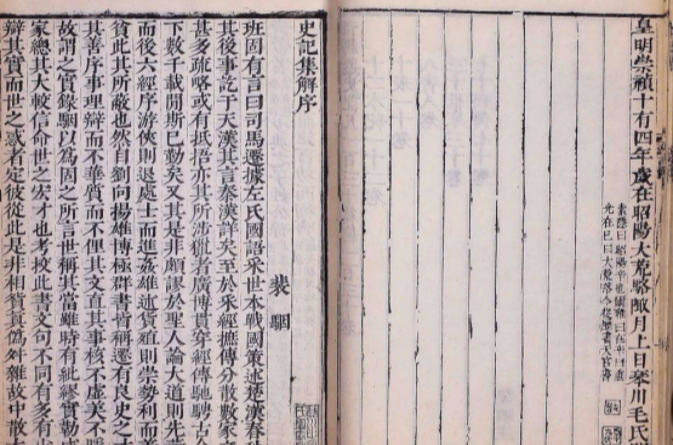 皇明崇禎十有四年歲在昭陽大荒駱陬月上日琴川毛氏
索隱曰昭陽辛也爾雅曰在辛曰重
光在巳曰大荒落今從歷書天官書
史記集解序
裴駰
班固有言曰司馬遷據左氏國語采世本戰國策述楚漢春
其後事訖于天漢其言秦漢詳矣至於采經摭傳分散數家
甚多疏略或有抵捂亦其所涉獵者廣博貫穿經傳馳騁古
下數千載閒斯已勤矣又其是非頗謬於聖人論大道則先
而後六經序游俠則退處士而進姦雄述貨殖則崇勢利而
貧此其所蔽也然自劉向揚雄博極群書皆稱遷有良史之
其善序事理辯而不華質而不俚其文直其事核不虛美不
故謂之實錄駰以為固之所言世稱其當雖時有紕繆實勒成
家總其大較信命世之宏才也考校此書文句不同有多有
辯其實而世之惑者定彼從此是非相貿真偽舛雜故中散大